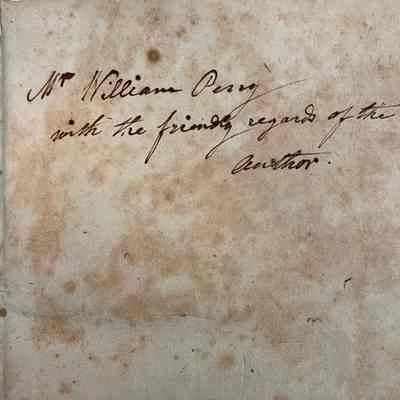 Mr William Perry
with the friendly regards of the
Author.